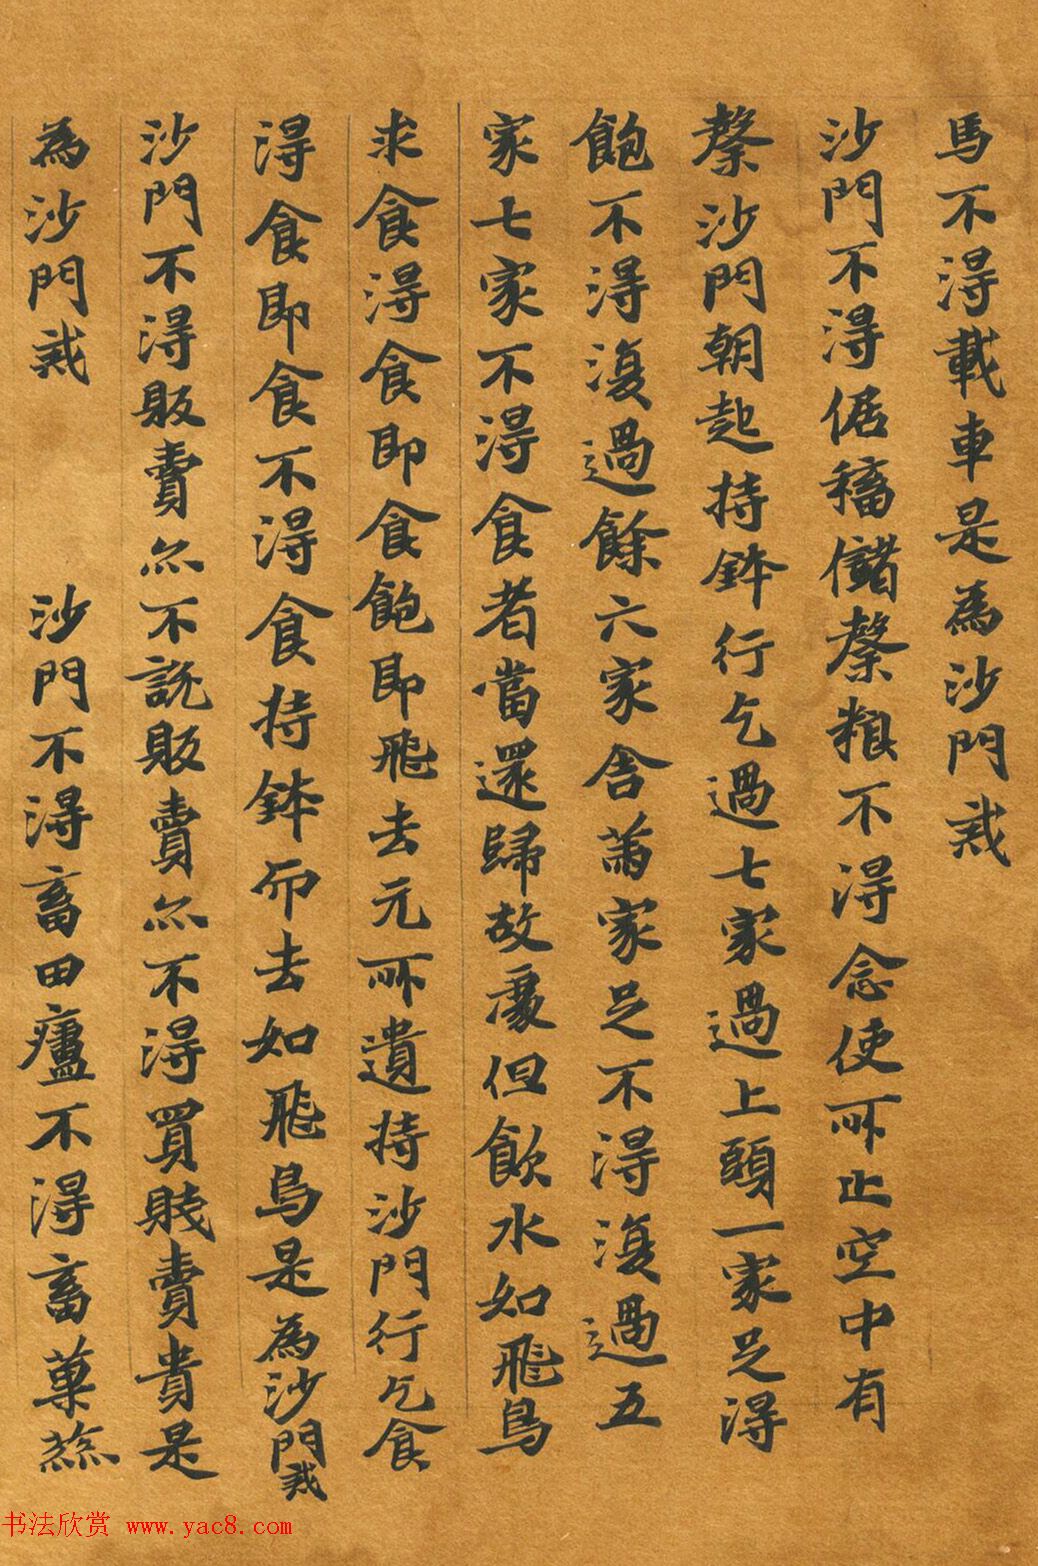 馬不得載車是為沙門戒
沙門不得倨穡儲檠粮不得念使所止空中有
檠沙門朝起持鉢行乞過七家過上頭一家足得
飽不得復過餘六家舍兩家足不得復過五
家七家不得食者當還歸故處但飲水如飛鳥
求食得食即食飽即飛去元所遺持沙門行乞食
得食即食不得食持鉢而去如飛鳥是為沙門戒
沙門不得販賣亦不說販賣亦不得買賤賣貴是
為沙門戒 沙門不得畜田廬不得畜菓蓏
书法欣赏 www.yac8.com